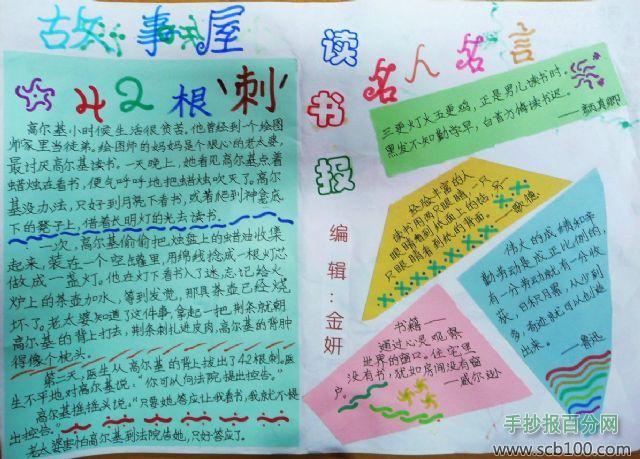 故事屋
42根“刺”
高尔基小时候生活很贫苦。他曾经到一个绘图
师家里当徒弟。绘图师的妈妈是个狠心的老太婆,
最讨厌高尔基读书。一天晚上,她看见高尔基点着
蜡烛在看书,便气呼呼地把蜡烛吹灭了。高尔
基没办法,只好到月亮下看书,或者爬到神龛底
下的凳子上,借着长明灯的光去读书。
一次,高尔基偷偷把烛盘上的蜡油收集
起来,装在一个空罐里,用绵线捻成一根灯芯
做成一盏灯。他在灯下看书入了迷,忘记给火
炉上的茶壶加水,等到发觉,那具茶壶已经烧
坏了。老太婆知道了这件事,拿起一把荆条就朝
高尔基的背上打去,荆条刺扎进皮肉,高尔基的背肿
得像个枕头。
第二天,医生从高尔基的背上拔出了42根刺。医
生不平地对高尔基说:“你可以向法院提出控告。”
高尔基摇摇头说。“只要她答应让我看书,我就不提
出控告。”
老太婆害怕高尔基到法院告她,只好答应了。
读书报
编辑:金妍
名人名言
三更灯火五更鸡,正是男儿读书时。
黑发不知勤学早,白首方悔读书迟。
——颜真卿
经验丰富的人
读书用两只眼睛,一只
眼睛看到纸面上的话,另一
只眼睛看到纸的背面。
——歌德
伟大的成绩和辛
勤劳动是成正比例的,
有一分劳动就有一分收
获,日积月累,从少到
多,奇迹就可以创造
出来。
——鲁迅
书籍——
通过心灵观察
世界的窗口。住宅里
没有书,犹如房间没有窗
户。
——威尔逊
手抄报百分网
www.scb100.com